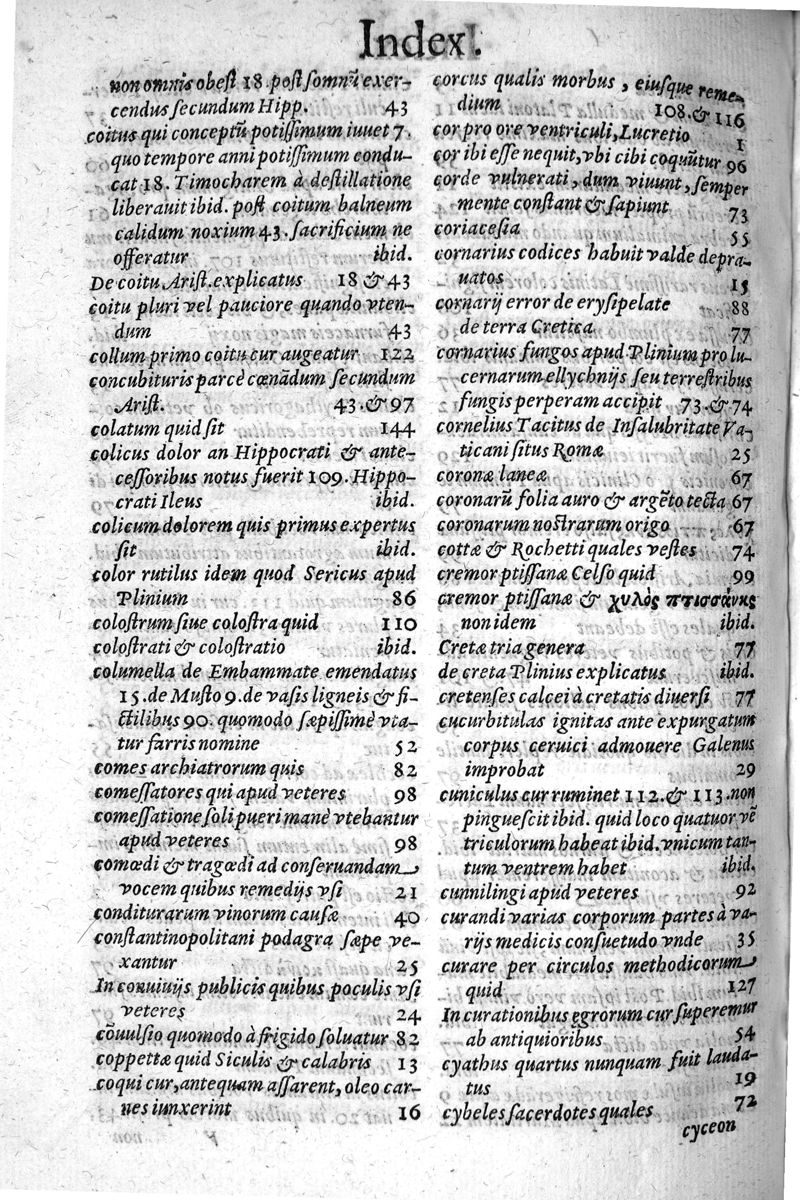 Index.
non omnis obest 18. post somnũ exer-
cendus secundum Hipp. 43
coitus qui conceptũ potissimum iuuet 7.
quo tempore anni potissimum condu-
cat 18. Timocharem à destillatione
liberauit ibid. post coitum balneum
calidum noxium 43. sacrificium ne
offeratur ibid.
De coitu Arist. explicatus 18 & 43
coitu pluri vel pauciore quando vten-
dum 43
collum primo coitu cur augeatur 122
concubituris parcè cœnãdum secundum
Arist. 43. & 97
colatum quid sit 144
colicus dolor an Hippocrati & ante-
cessoribus notus fuerit 109. Hippo-
crati Ileus ibid.
colicum dolorem quis primus expertus
sit ibid.
color rutilus idem quod Sericus apud
Plinium 86
colostrum siue colostra quid 110
colostrati & colostratio ibid.
columella de Embammate emendatus
15. de Musto 9. de vasis ligneis & fi-
ctilibus 90. quomodo sæpissimè vta-
tur farris nomine 52
comes archiatrorum quis 82
comessatores qui apud veteres 98
comessatione soli pueri manè vtebantur
apud veteres 98
comœdi & tragœdi ad conseruandam
vocem quibus remedijs vsi 21
conditurarum vinorum causæ 40
constantinopolitani podagra sæpe ve-
xantur 25
In conuiuijs publicis quibus poculis vsi
veteres 24
cõuulsio quomodo à frigido soluatur 82
coppettæ quid Siculis & calabris 13
coqui cur, antequam assarent, oleo car-
nes iunxerint 16
corcus qualis morbus, eiusque reme-
dium 108. & 116
cor pro ore ventriculi, Lucretio 1
cor ibi esse nequit, vbi cibi coquũtur 96
corde vulnerati, dum viuunt, semper
mente constant & sapiunt 73
coriacesia 55
cornarius codices habuit valde depra-
uatos 15
cornarij error de erysipelate 88
de terra Cretica 77
cornarius fungos apud Plinium pro lu-
cernarum ellychnijs seu terrestribus
fungis perperam accipit 73. & 74
cornelius Tacitus de Insalubritate Va-
ticani situs Romæ 25
coronæ laneæ 67
coronarũ folia auro & argẽto tecta 67
coronarum nostrarum origo 67
cottæ & Rochetti quales vestes 74
cremor ptissanæ Celso quid 99
cremor ptissanæ & χυλὸς πτισσάνης
non idem ibid.
Cretæ tria genera 77
de creta Plinius explicatus ibid.
cretenses calcei à cretatis diuersi 77
cucurbitulas ignitas ante expurgatum
corpus ceruici admouere Galenus
improbat 29
cuniculus cur ruminet 112. & 113. non
pinguescit ibid. quid loco quatuor vẽ
triculorum habeat ibid. vnicum tan-
tum ventrem habet ibid.
cunnilingi apud veteres 92
curandi varias corporum partes à va-
rijs medicis consuetudo vnde 35
curare per circulos methodicorum
quid 127
In curationibus ęgrorum cur superemur
ab antiquioribus 54
cyathus quartus nunquam fuit lauda-
tus 19
cybeles sacerdotes quales 72
cyceon